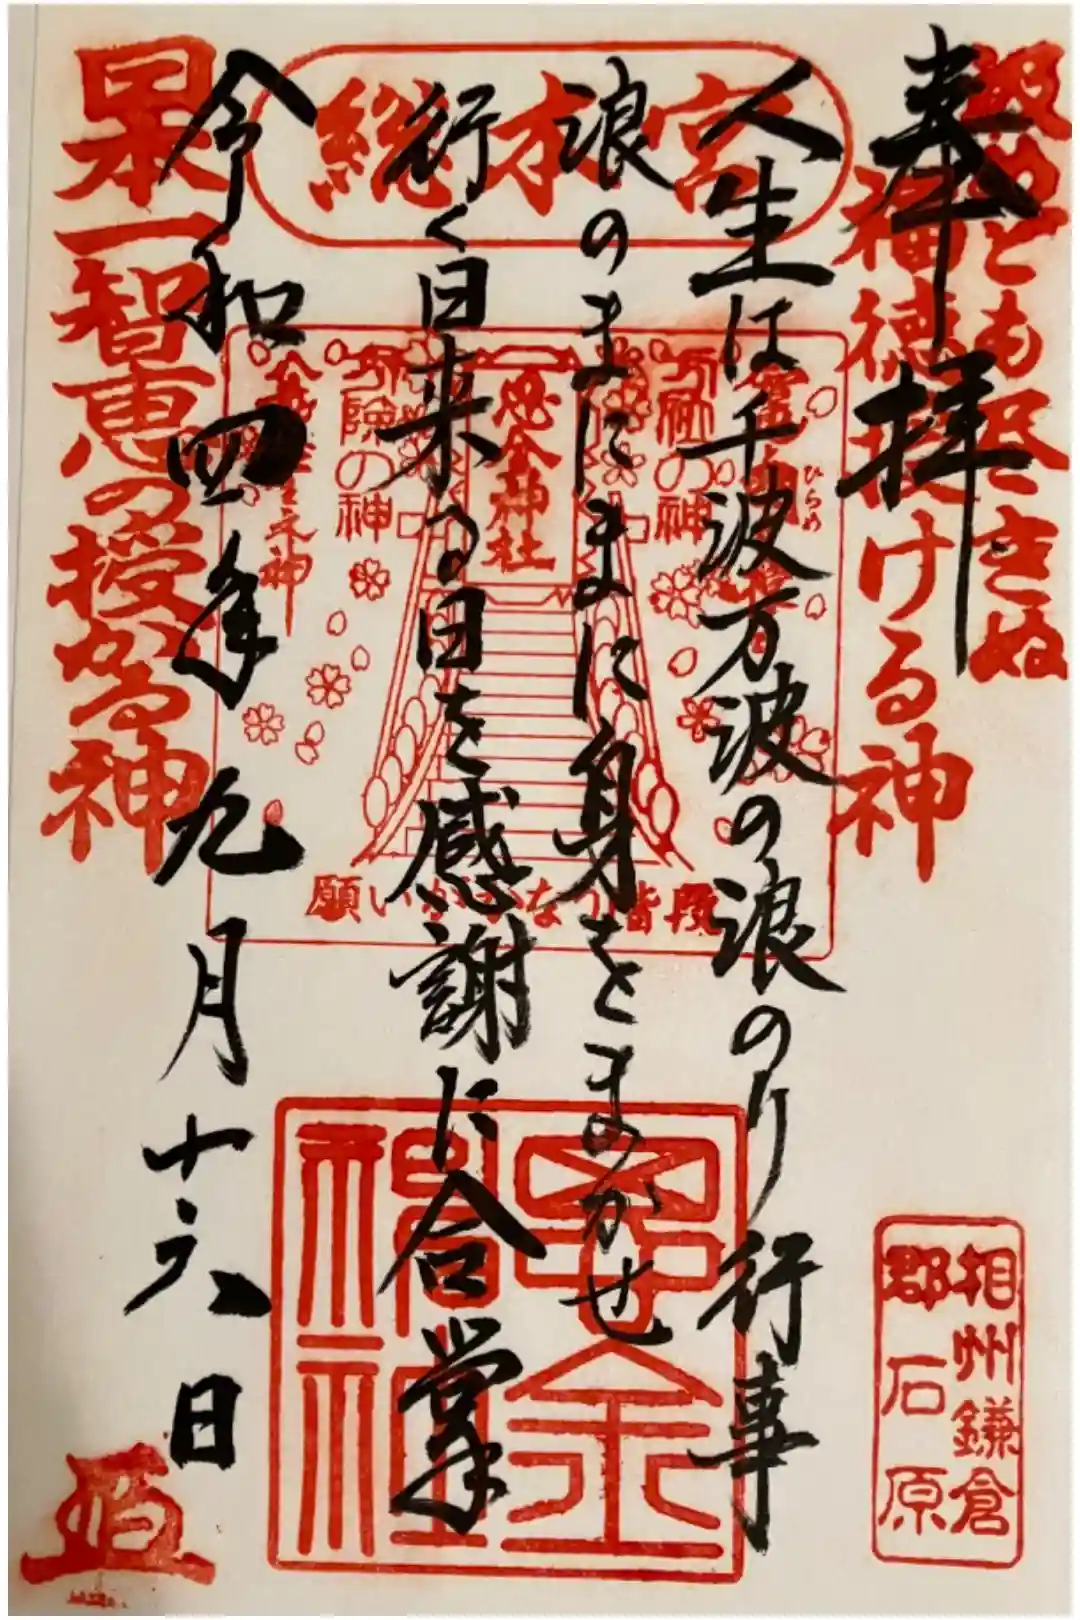 奉拝
汲めども尽きぬ
福徳授ける神
人生は千波万波の浪のり行事
浪のまにまに身をまかせ
行く日来る日を感謝に合掌
令和四年九月十六日
総本宮
思金神社
の神
険の神
ひらめ
願いがかなう階段
日本一智恵の授かる神
思金神社
相州鎌倉
郡石原